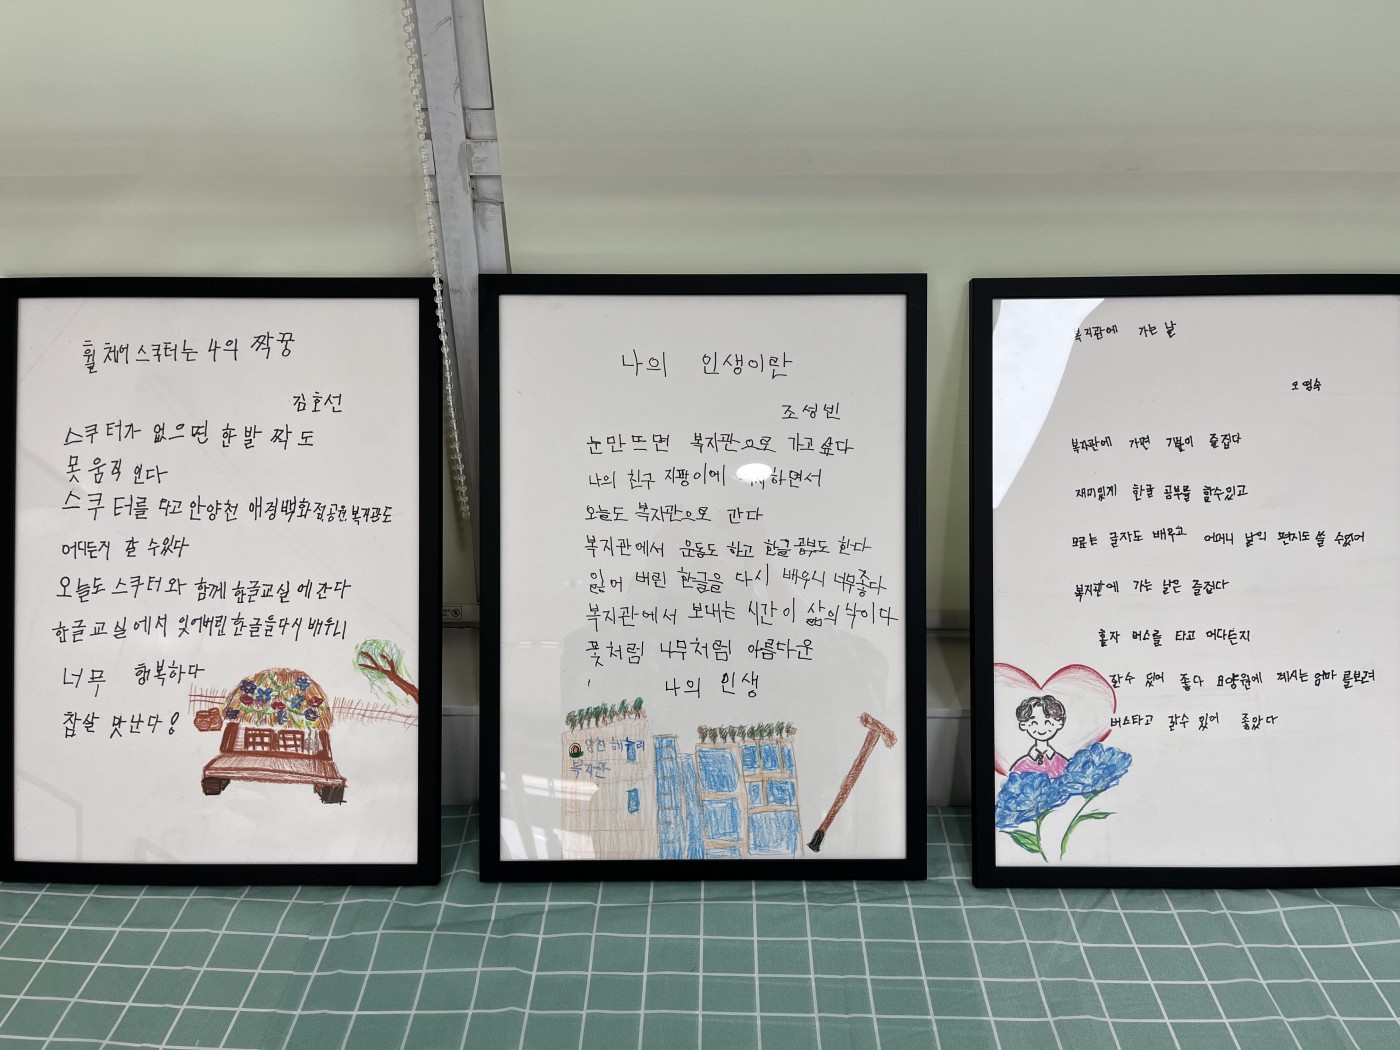 휠체어 스쿠터는 나의 짝꿍
김호선
스쿠터가 없으면 한 발 짝도
못 움직인다
스쿠터를 타고 안양천 애경백화점공원 복지관도
어디든지 갈 수있다
오늘도 스쿠터와 함께 한글교실에 간다
한글교실에서 잊어버린 한글을 다시 배우니
너무 행복하다
찹살 맛난다!
나의 인생이란
조성빈
눈만뜨면 복지관으로 가고싶다
나의 친구 지팡이에 하면서
오늘도 복지관으로 간다
복지관에서 운동도 하고 한글공부도 한다
잃어 버린 한글을 다시 배우니 너무좋다
복지관에서 보내는 시간이 삶의낙이다
꽃처럼 나무처럼 아름다운
나의 인생
복지관
복지관에 가는 날
오영숙
복지관에 가면 기분이 즐겁다
재미있게 한글 공부를 할수있고
모르는 글자도 배우고 어머니 날의 편지도 쓸 수있어
복지관에 가는 날은 즐겁다
혼자 버스를 타고 어디든지
갈수 있어 좋다 요양원에 계시는 엄마 를보려
버스타고 갈수 있어 좋았다